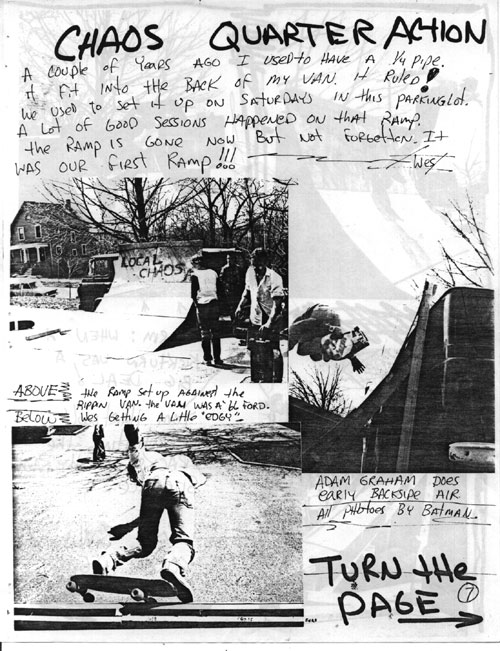 CHAOS QUARTER ACTION
A COUPLE OF YEARS AGO I USED TO HAVE A 1/4 PIPE.
IT FIT INTO THE BACK OF MY VAN. IT RULED!
WE USED TO SET IT UP ON SATURDAYS IN THIS PARKINGLOT.
A LOT OF GOOD SESSIONS HAPPENED ON THAT RAMP.
THE RAMP IS GONE NOW BUT NOT FORGETTON. IT
WAS OUR FIRST RAMP!!!
WES
LOCAL
CHAOS
ABOVE
BELOW
THE RAMP SET UP AGAINED THE
VAN. THE VAN WAS A FORD.
WES GETTING A LITTLE "EDGY"
ADAM GRAHAM DOES
EARLY BACKSIDE AIR
All PHOTOES BY BATMAN.
TURN THE
PAGE
7